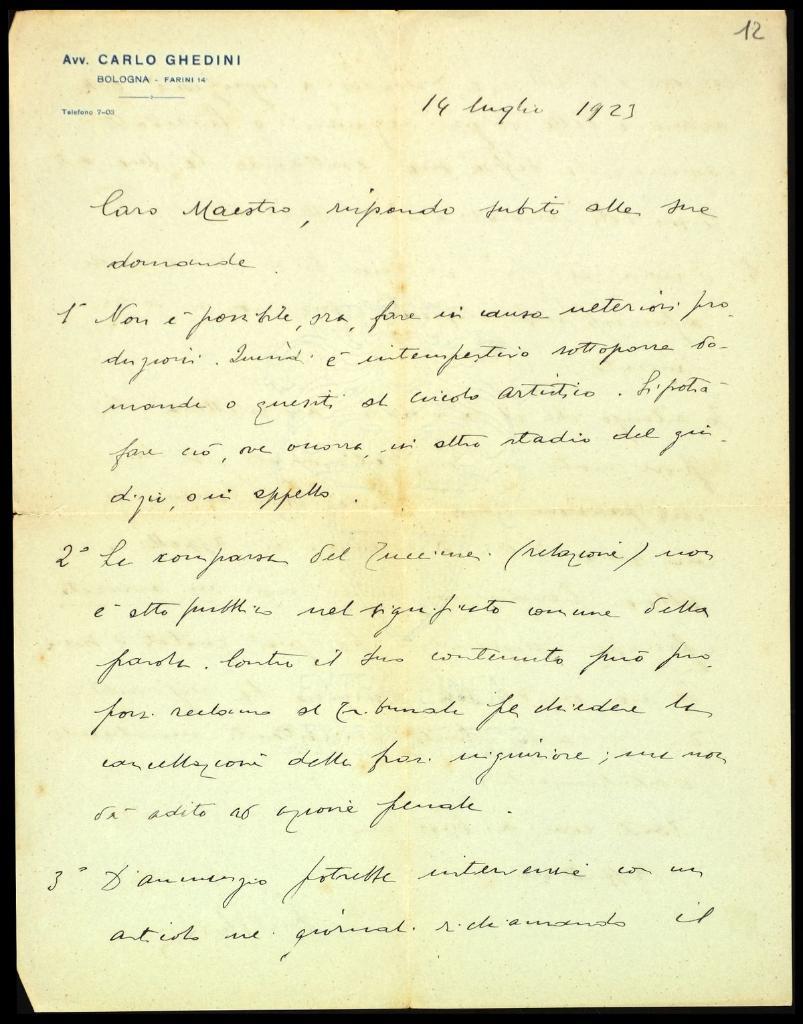 12
Avv. CARLO GHEDINI
BOLOGNA - FARINI 14
Telefono 7-03
14 luglio 1923
Caro Maestro, rispondo subito alle sue
domande.
1° Non è possibile, ora, fare in causa ulteriori pro-
duzioni. Quindi è intempestivo sottoporre do-
mande o quesiti al circolo artistico. Si potrà
fare ciò, ove occorra, in altro stadio del giu-
dizio, o in appello.
2° La comparsa del (relazione) non
è atto pubblico nel significato comune della
parola. Contro il suo contenuto può pro-
porsi reclamo al Tribunale per chiedere la
cancellazione delle frasi ingiuriose; ma non
dà adito ad azione penale.
3° D'annunzio potrebbe intervenire con un
articolo nei giornali richiamando il